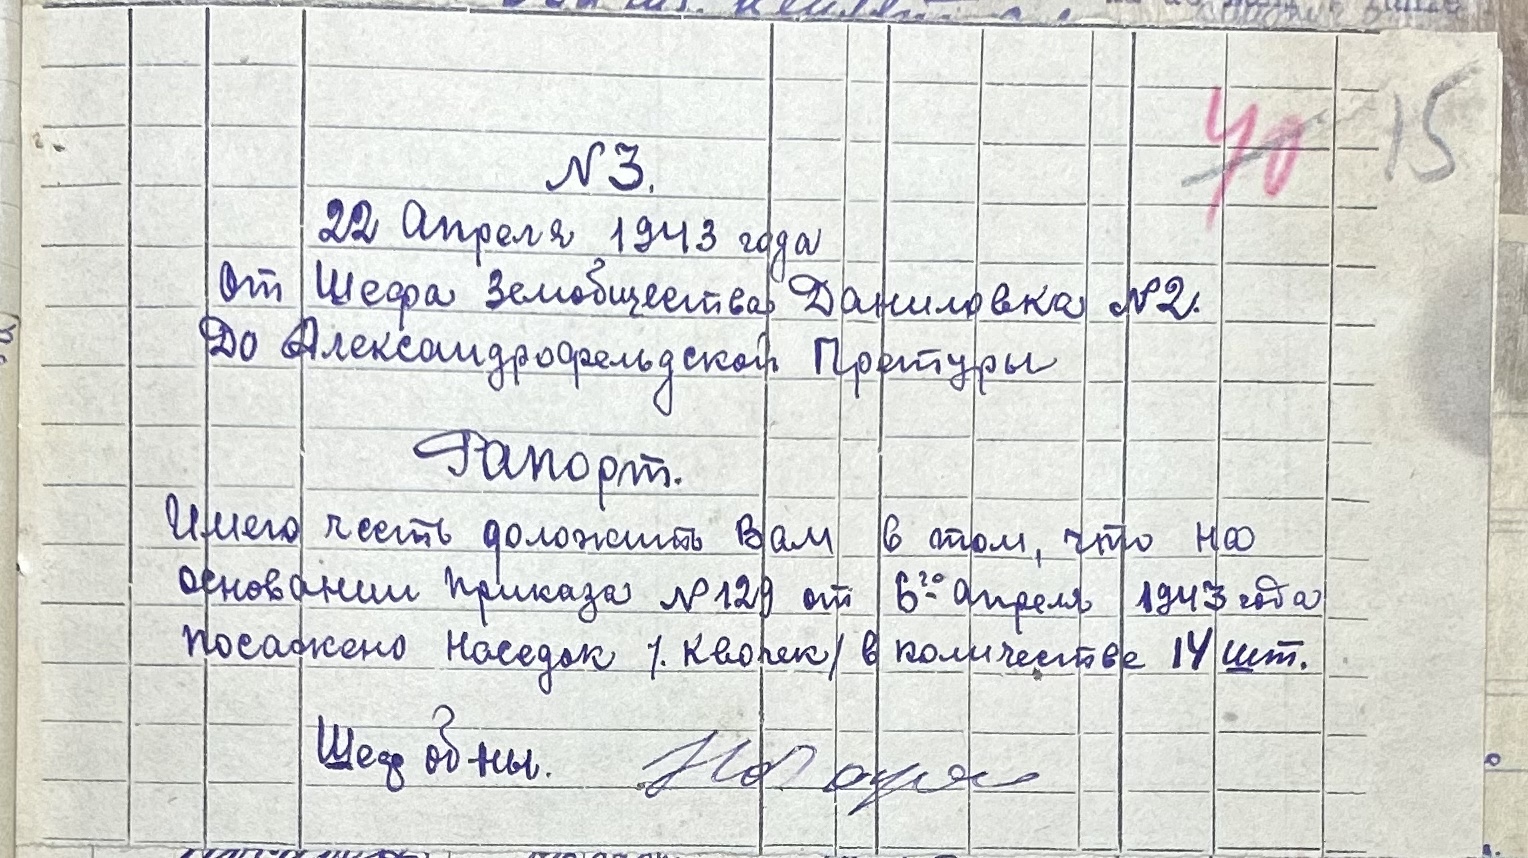 40 15
N 3.
22 Апреля 1943 года
От Шефа Земобщества Даниловка N 2.
До Александрофельдской Претуры
Рапорт.
Имею честь доложить Вам в том, что на
основании приказа N 129 от 6го Апреля 1943 года
посажено наседок /. Квочек/ в количестве 14 шт.
Шеф об-ны.